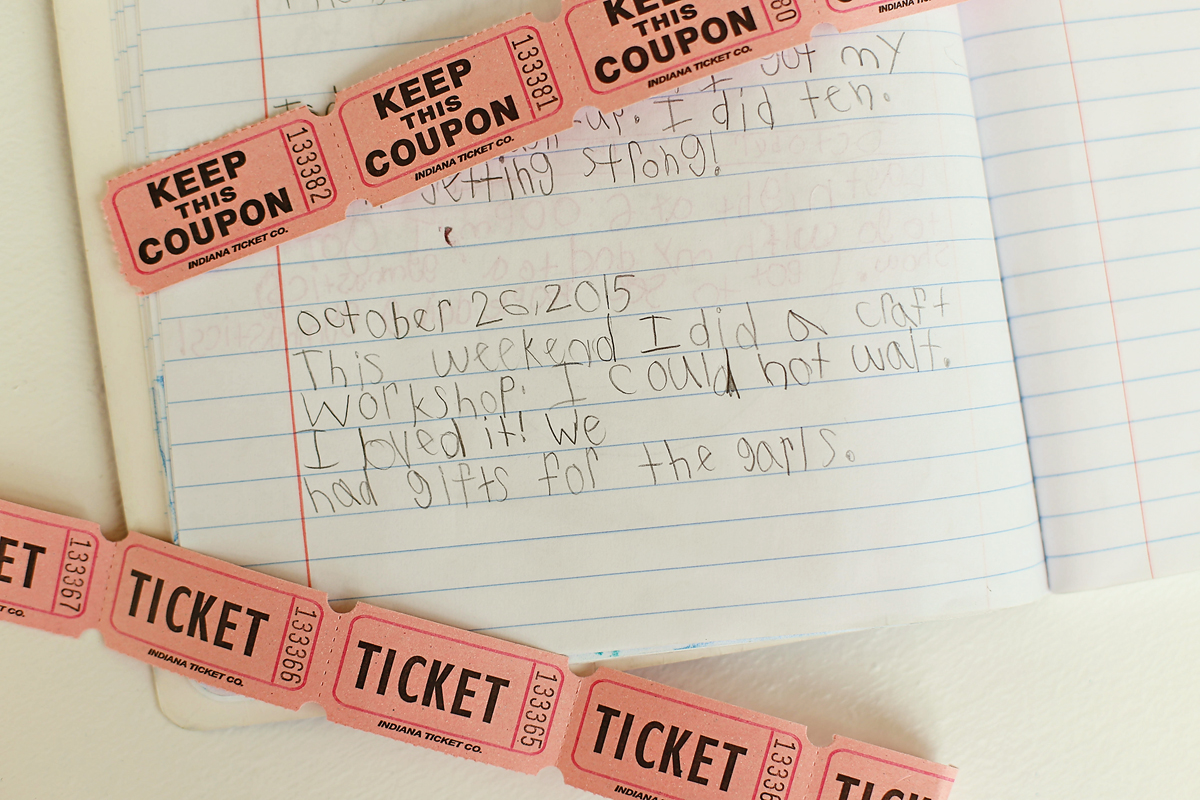 KEEP
THIS
COUPON
INDIANA TICKET CO.
80
KEEP
THIS
COUPON
INDIANA TICKET CO.
133381
KEEP
THIS
COUPON
INDIANA TICKET CO.
133382
INDIANA TICKET CO.
got my
-up. I did ten.
getting strong!
October 26, 2015
This weekend I did a craft
workshop. I could not wait.
I loved it! We
had gifts for the garls.
ET
133367
TICKET
INDIANA TICKET CO.
133366
TICKET
INDIANA TICKET CO.
133365
TICKET
INDIANA
13336
TICK